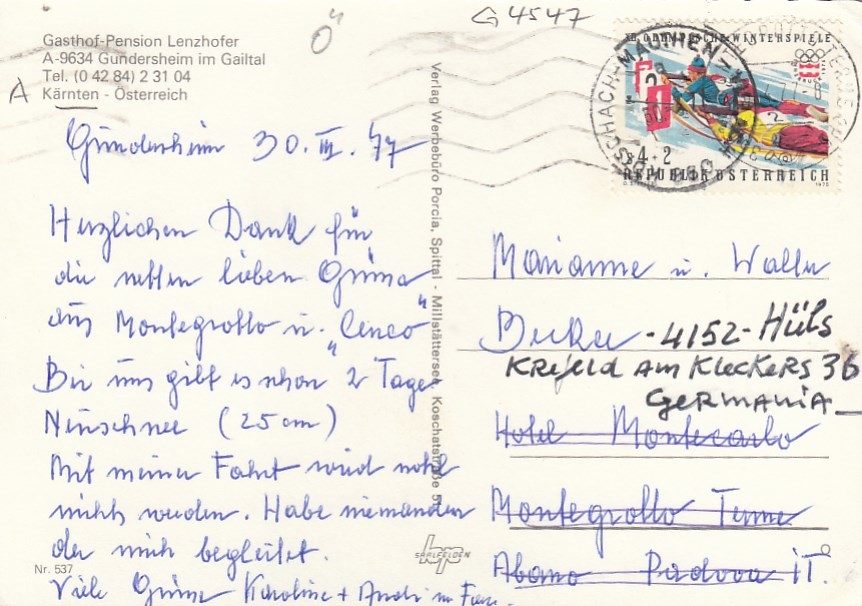 G 4547
Ö"
A
Gasthof-Pension Lenzhofer
A-9634 Gundersheim im Gailtal
Tel. (0 42 84) 2 31 04
Kärnten - Österreich
Gundersheim 30. III. 77
Herzlichen Dank für
die netten lieben Grüsse
aus Montegrotto u. "Cenco"
Bei uns gibt es schon 2 Tage
Neuschnee (25 cm)
Mit meiner Fahrt wird wohl
nichts werden. Habe niemanden
der mich begleitet.
Viele Grüsse Karoline + Andi m Fam.
Nr. 537
Verlag Werbebüro Porcia, Spittal - Millstättersee, Koschatstraße 5
bp
SAALFELDEN
XII. OLYMPISCHE WINTERSPIELE
S 4+2
REPUBLIK ÖSTERREICH
1975
KÖTSCHACH-MAUTHEN
Marianne u. Walter
Becker - 4152 - Hüls
Krefeld Am Kleckers 36
GERMANIA
Hotel Montecarlo
Montegrotto Terme
Abano Padova IT.